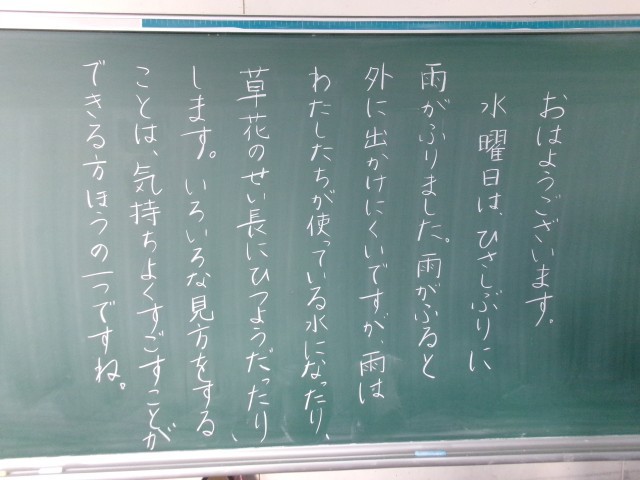 おはようございます。
水曜日は、ひさしぶりに
雨がふりました。雨がふると
外に出かけにくいですが、雨は
わたしたちが使っている水になったり、
草花のせい長にひつようだったり、
します。いろいろな見方をする
ことは、気持ちよくすごすことが
できる方ほうの一つですね。